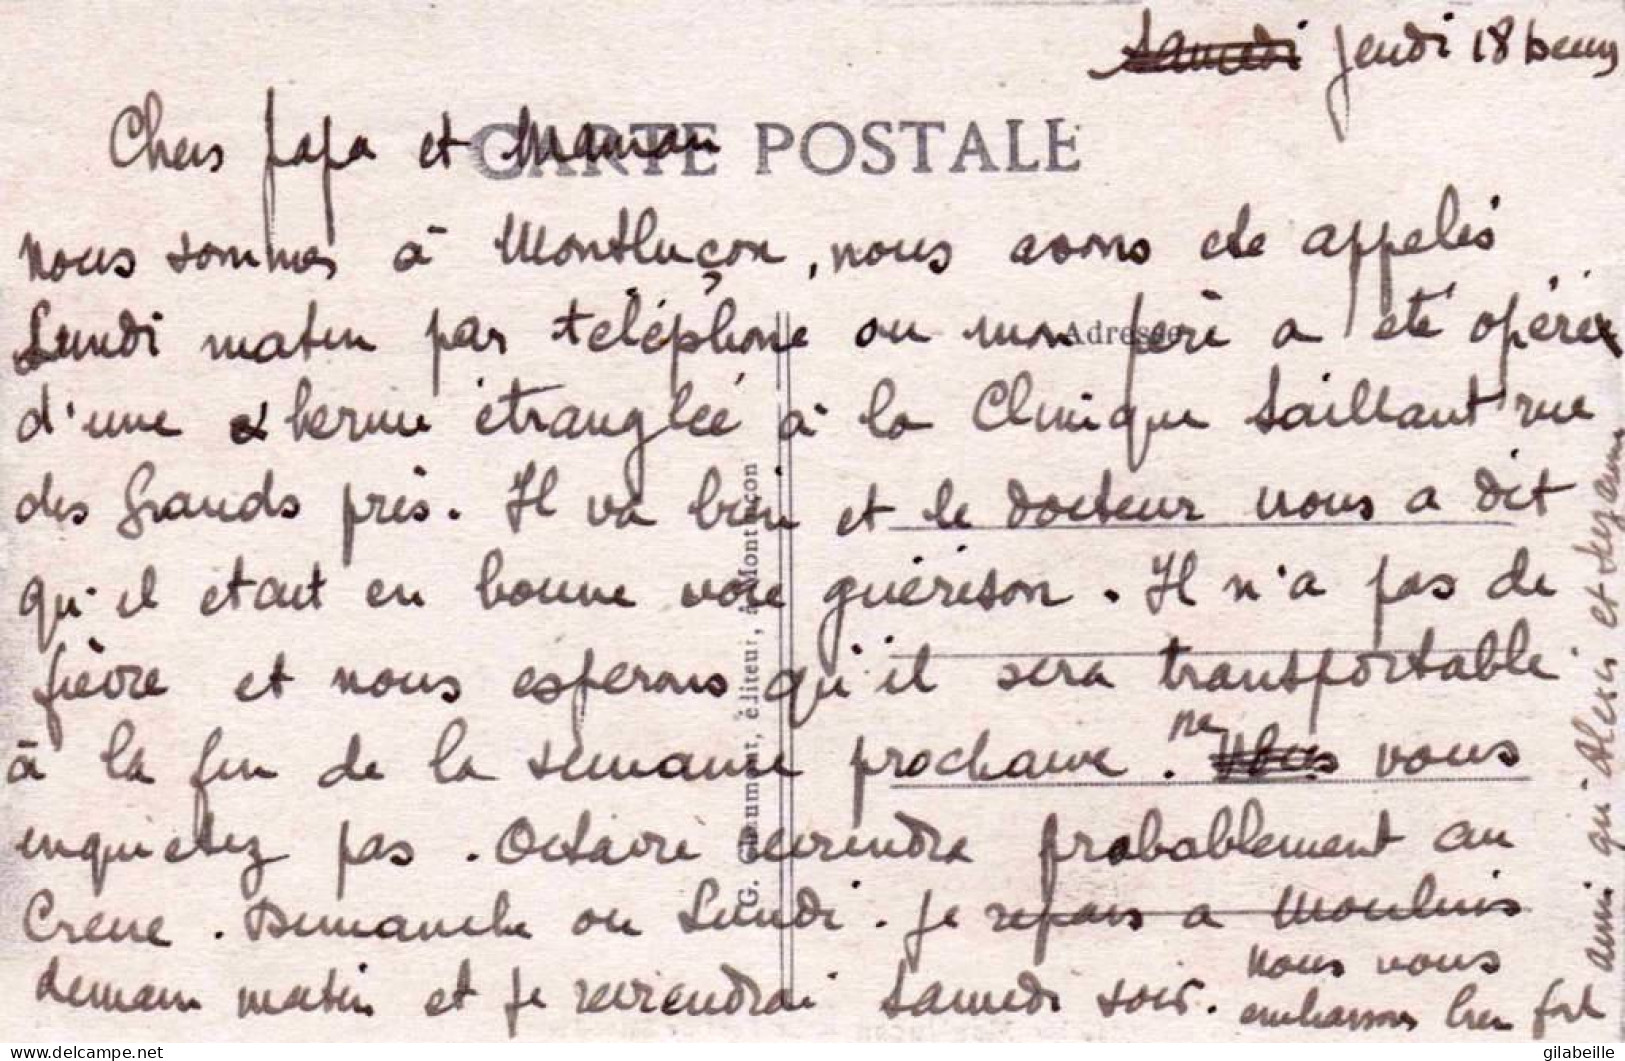 Samedi Jeudi 18 heures
CARTE POSTALE
Chers papa et Maman
nous sommes à Montluçon, nous avons ete appelés
Lundi matin par téléphone ou mon père a été opéré
d'une hernie étranglée à la Clinique Saillant rue
des Grands près. Il va bien et le docteur nous a dit
qu'il etait en bonne voie guérison. Il n'a pas de
fièvre et nous esperons qu'il sera transportable
à la fin de la semaine prochaine. ne vous
inquietez pas. Octavie reviendra probablement au
Crene. Dimanche ou Lundi. Je repars a Moulins
demain matin et je reviendrai Samedi soir. nous vous
embrassons bien fort
ainsi qu' et Suzanne
Adresse
G. Chaumont, éditeur, à Montluçon
delcampe.net
gilabeille